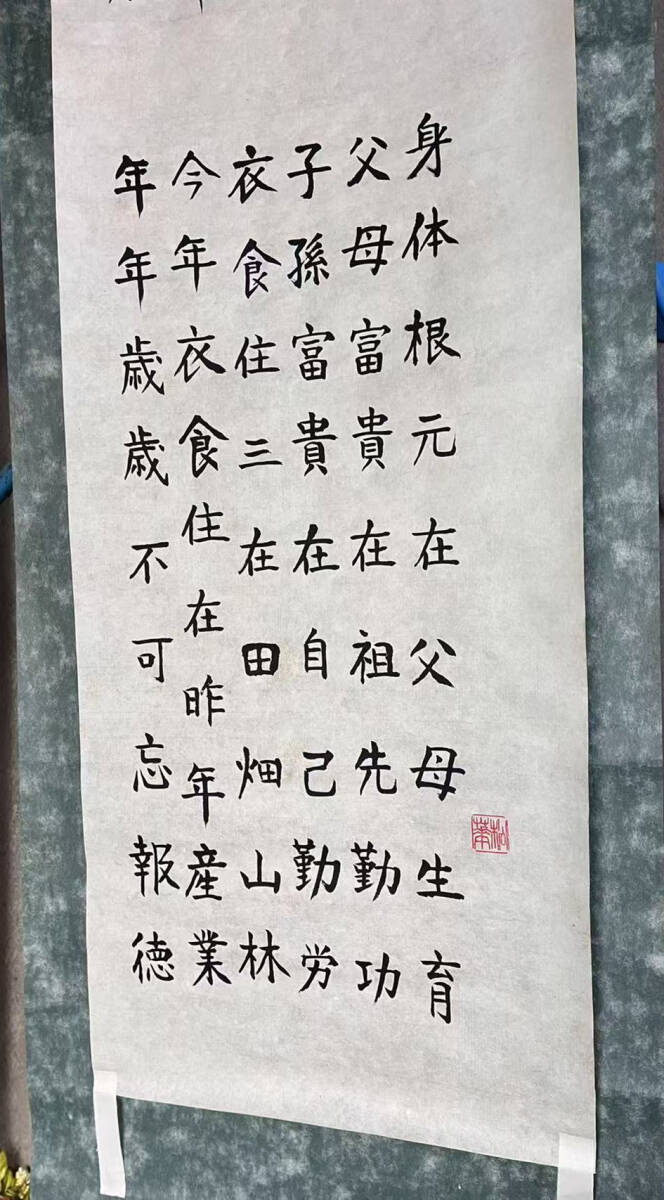 身体根元在父母生育
父母富貴在祖先勤功
子孫富貴在自己勤労
衣食住三在田畑山林
今年衣食住在昨年産業
年年歳歳不可忘報徳